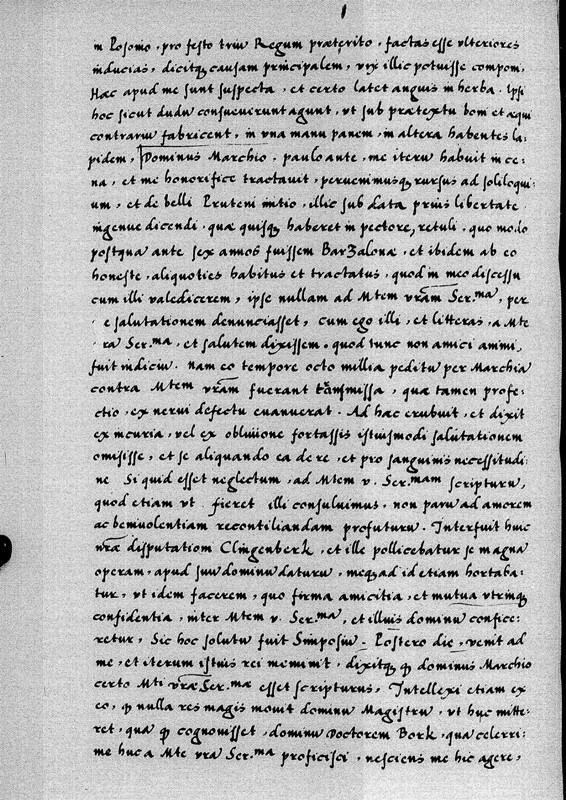 in Posonio, pro festo triū Regum præterito, factas esse vlteriores
inducias, dicitq̃ causam principalem, vix illic potuisse componi.
Hæc apud me sunt suspecta, et certo latet anguis in herba. Ipsi
hoc sicut dudū consueuerunt agunt, vt sub prætextu boni et æqui
contrariū fabricent, in vna manu panem, in altera habentes la-
pidem, Dominus Marchio, paulo ante, me iterū habuit in ce-
na, et me honorifice tractauit, peruenimusq̃ rursus ad soliloqui-
um, et de belli Pruteni initio, illic sub data prius libertate
ingenue dicendi, quæ quisq̃ haberet in pectore, retuli, quo modo
postquā ante sex annos fuissem Barzalonæ, et ibidem ab eo
honeste, aliquoties habitus et tractatus, quod in meo discessu
cum illi valedicerem, ipse nullam ad Mtem vrām Ser.ma, per
e salutationem denunciasset, cum ego illi, et litteras, a Mte
ra Ser.ma, et salutem dixissem, quod tunc non amici animi,
fuit indiciū. nam eo tempore octo millia peditū per Marchiā
contra Mtem vrām fuerant transmissa, quæ tamen profe-
ctio, ex nerui defectu euanuerat. Ad hæc erubuit, et dixit
ex incuria, vel ex obliuione fortassis istiusmodi salutationem
omisisse, et se aliquando ea de re, et pro sanguinis necessitudi-
ne Si quid esset neglectum, ad Mtem v. Ser.mam scripturū,
quod etiam vt fieret illi consuluimus, non parū ad amorem
ac beniuolentiam reconciliandam profuturū. Interfuit huic
nr̄æ disputationi Clingenberk, et ille pollicebatur se magnā
operam, apud suū dominū daturū, meq̃ ad id etiam hortaba-
tur, vt idem facerem, quo firma amicitia, et mutua vtrinq̃
confidentia, inter Mtem v. Ser.ma, et illius dominū confice-
retur, Sic hoc solutū fuit Simposiū. Postero die, venit ad
me, et iterum istius rei meminit, dixitq̃ q̃ dominus Marchio
certo Mti vræ Ser.mæ esset scripturus, Intellexi etiam ex
eo, q̃ nulla res magis mouit dominū Magistrū, vt huc mitte-
ret, quā q̃ cognouisset, dominū Doctorem Bork, quā celerri-
me huc a Mte vra Ser.ma proficisci, nesciens me hic agere,